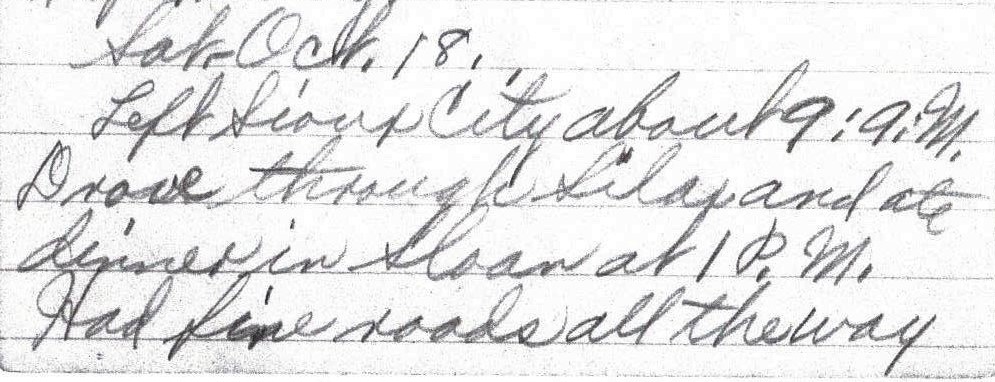 Sat. Oct. 18.,
Left Sioux City about 9: A.M.
Drove through and ate
dinner in Sloan at 1 P.M.
Had fine roads all the way